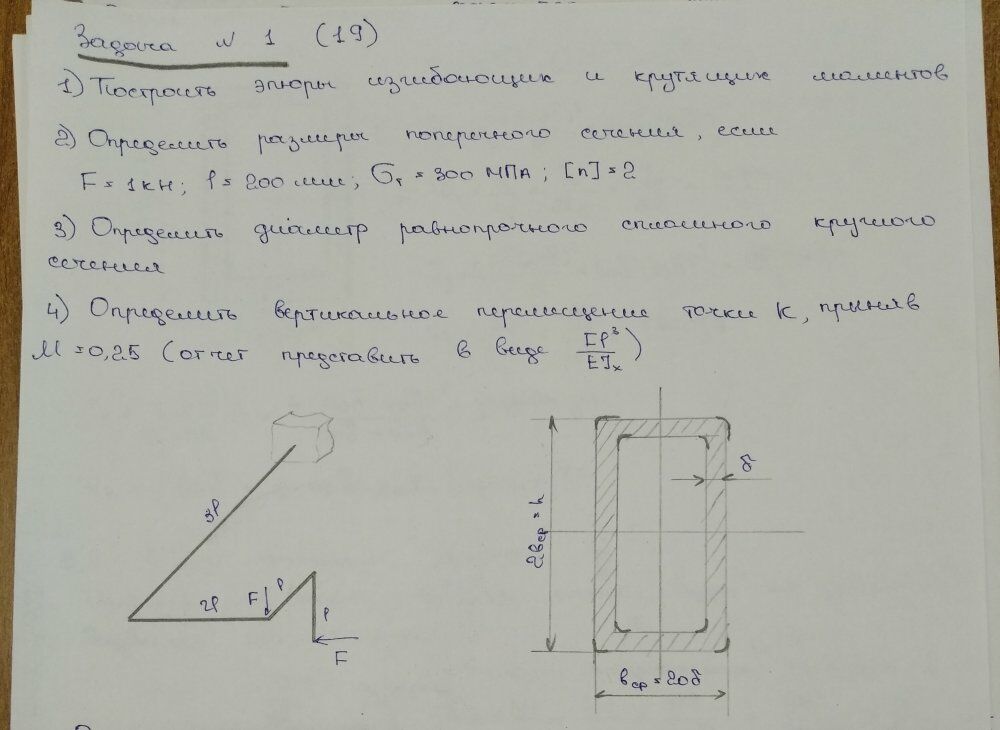 Задача № 1 (19)
1) Построить эпюры изгибающих и крутящих моментов
2) Определить размеры поперечного сечения, если
F = 1кН; l = 200 мм; σт = 300 МПа; [n] = 2
3) Определить диаметр равнопрочного сплошного круглого
сечения
4) Определить вертикальное перемещение точки К, приняв
M = 0,25 (отчет представить в виде Fl³/EJx)
3l
2l
F
l
l
F
2bср = h
δ
bср = 20δ